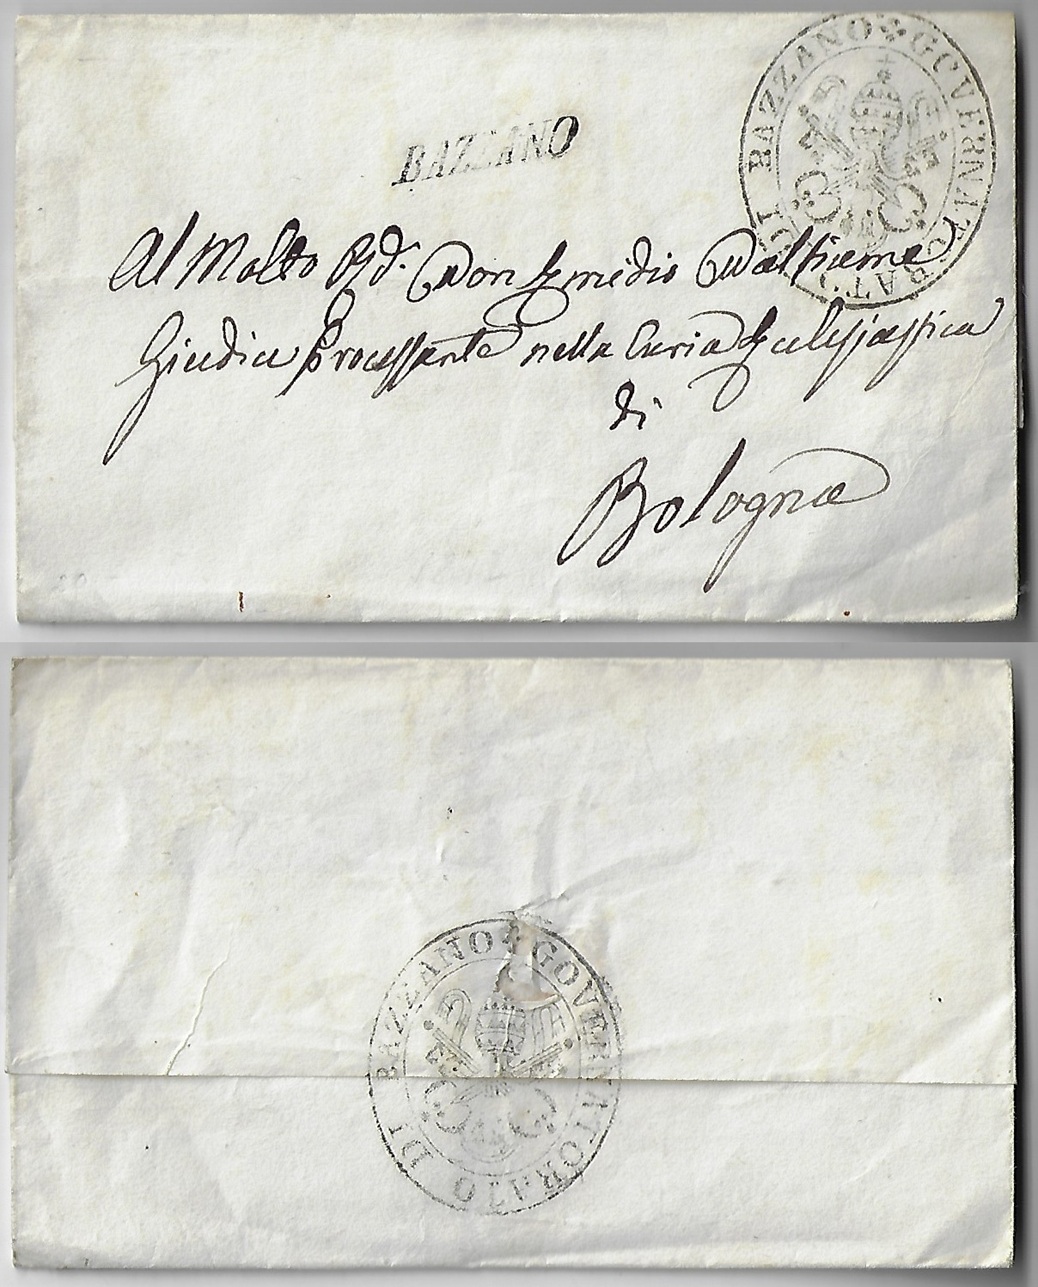 GOVERNATORATO DI BAZZANO
BAZZANO
Al Molto Rdo. Don Emedio
Giudice Processante nella Curia Ecclesiastica
di
Bologna
GOVERNATORATO DI BAZZANO